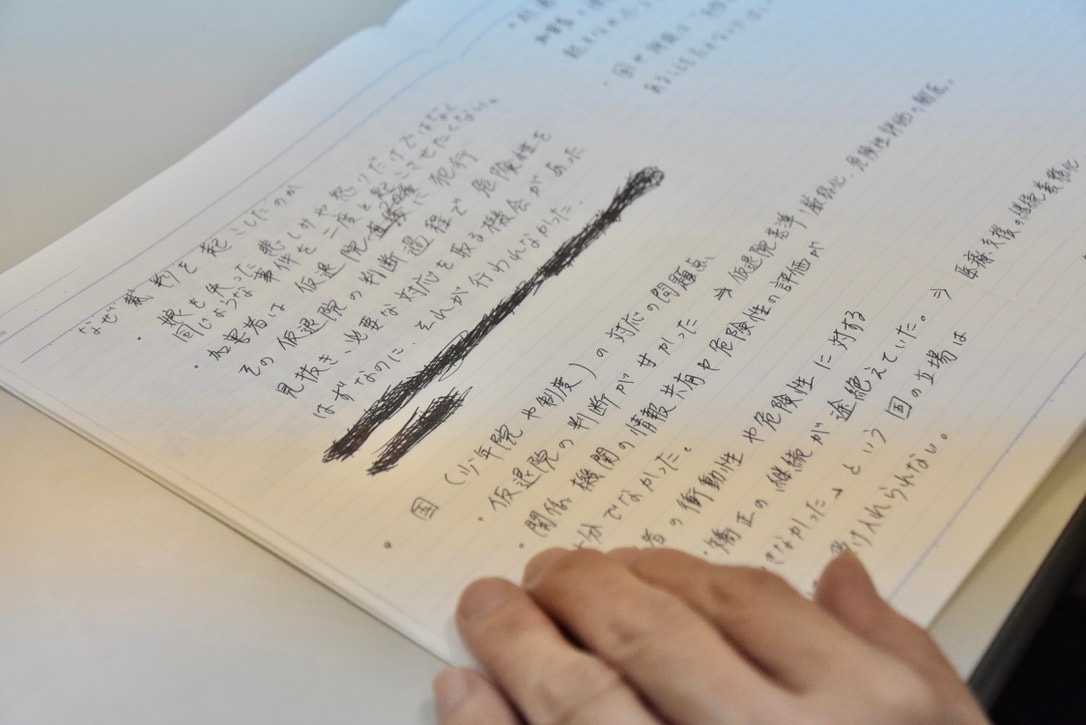 なぜ裁判を起こしたのか
・娘を失った悲しみや怒りだけではなく
同じような事件を二度と起こさせたくない。
・加害者は、仮退院直後に犯行
その仮退院の判断過程で危険性を
見抜き、必要な対応を取る機会があった
はずなのに、それが行われなかった。
国（少年院や制度）の対応の問題点
・仮退院の判断が甘かった ⇒ 仮退院基準の厳格化、危険性評価の徹底。
・関係機関の情報共有や危険性の評価が
十分でなかった。
者の衝動性や危険性に対する
矯正の継続が途絶えていた。⇒ 医療・支援の継続義務化
きなかった」という国の立場は
受け入れられない。